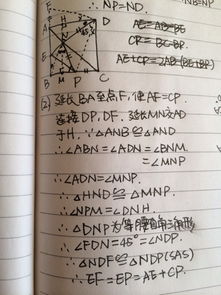 ∴ NP=ND.
F
A
D
H
N
E
B M P C
AE=AB-BE
CP=BC-BP.
AE+CP=2AB-(BE+BP)
(2) 延长BA至点F,使AF=CP.
连接DP,DF,延长MN交AD
于H,∵△ANB≌△AND
∴∠ABN=∠ADN=∠BNM.
=∠MNP
∴∠ADN=∠MNP.
∴△HND≌△MNP.
∴∠NPM=∠DNH.
∴△DNP为等腰直角三角形
∴∠FDN=45°=∠NDP.
∴△NDF≌△NDP(SAS)
∴EF=EP=AE+CP.